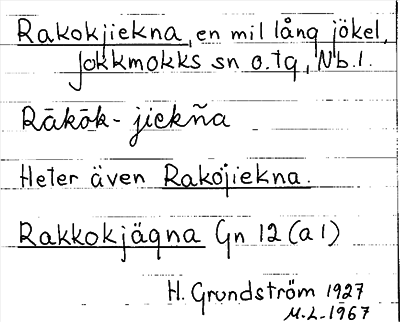 Rakokjiekna, en mil lång jökel,
Jokkmokks sn o.tg, Nb.l.
Răkŏk-jiekña
Heter även Rakojiekna.
Rakkokjägna Gn 12 (a 1)
H. Grundström 1927
M.L-1967